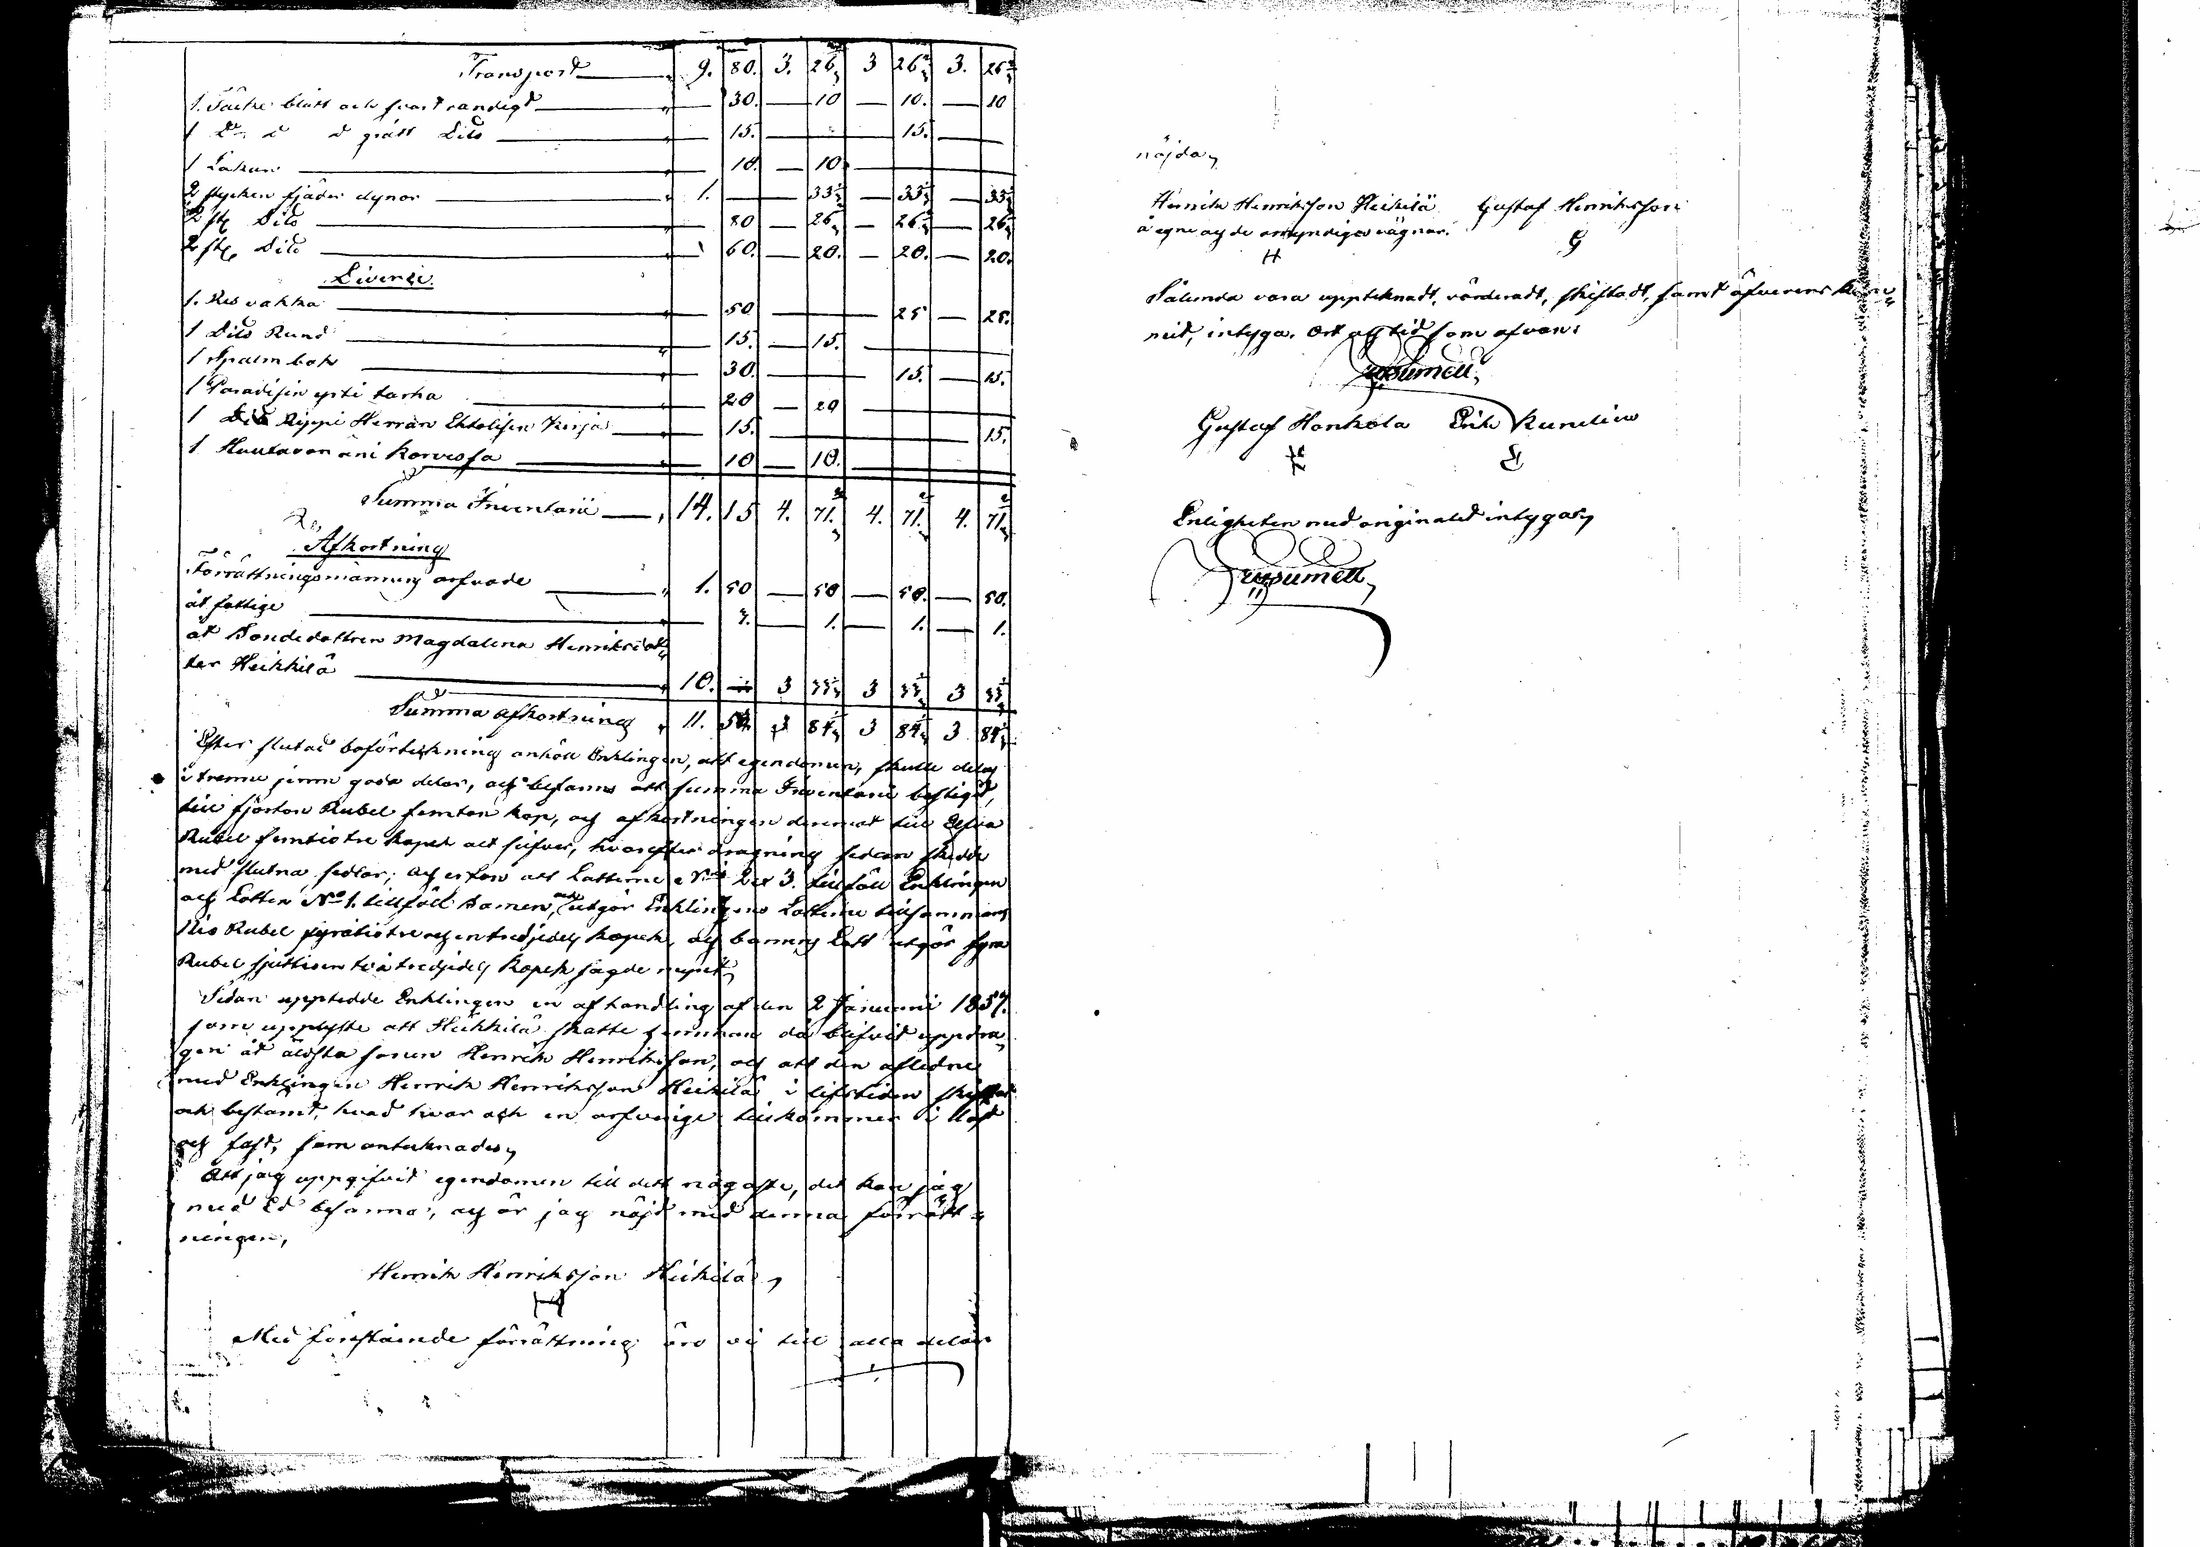 Transport 9. 80. 3. 26 2/3 3 26 2/3 3. 26 2/3
1. Täcke blått och svart randigt 30. 10 10. 10
1 D:o d d grått Dito 15. 15.
1 Lakan 10. 10
2 stycken fjäder dynor 1. 33 1/3 33 1/3 33 1/3
2 st Dito 80 26 2/3 26 2/3 26 2/3
2 st Dito 60. 20. 20. 20.
Diverse.
1. Res vakka 50 25 25.
1 Dito Rund 15. 15.
1 Psalm bok 30. 15. 15.
1 Paradisin yrti tarha 20 20
1 Dito Rippi Herran Ehtolisen Kirja 15. 15.
1 Huutavan äni Korvessa 10 10.
Summa Inventarii 14. 15 4. 71 2/3 4. 71 2/3 4. 71 2/3
Afkortning
Förrättningsmännens arfvode 1. 50 50 50. 50.
åt fattige 3. 1. 1. 1.
åt Bondedottren Magdalena Henriksdot
ter Heikkilä 10. 3 33 1/3 3 33 1/3 3 33 1/3
Summa afkortning 11. 53. 3 84 1/3 3 84 1/3 3 84 1/3
Efter slutad boförtekning anhöll Enklingen, att egendomen, skulle delas
i trenne jemn goda delar, och befanns att summa Inventarii bestiget,
till fjorton Rubel femton kop, och afkortningen deremot till Elfva
Rubel femtiotre kopek allt silfver, hvarefter dragning sedan skedde
med slutna sedlar; och erfors att Lotterne N:o 2 et 3. tillföll Enklingen
och Lotten N:o 1. tillföll barnen, och utgör Enklingens Lotterne tillsammans
Nio Rubel fyratiotre och en tredjedels kopek, och barnens Lott utgör fyra
Rubel sjuttien två tredjedels kopek sagde mynt,
Sedan uppteedde Enklingen en afhandling af den 2 Januarii 1857.
som upplyste att Heikkilä skatte hemman då blifvit uppdra
gen åt äldsta sonen Henrik Henriksson, och att den aflidne
med Enklingen Henrik Henriksson Heikilä i lifstiden skiftat
och bestämt, hvad hvar och en arfvinge tillkommer i löst
och fast, som antecknades,
Att jag uppgifvit egendomen till dett nogaste, det kan jag
med Ed besanna, och är jag nöjd med denna förrätt
ningen,
Henrik Henriksson Heikilä,
H
Med förestående förrättning äro vi till alla delar
nöjda,
Henrik Henriksson Heikilä Gustaf Henriksson
å egne och de omyndiges vägnar. G
H
Sålunda vara upptecknadt, värderadt, skiftadt, samt öfverens kom
mit, intyga. Ort och tid som ofvan:
Gustaf Honkola Erik Kunelius
Enligheten med originalet intygas,